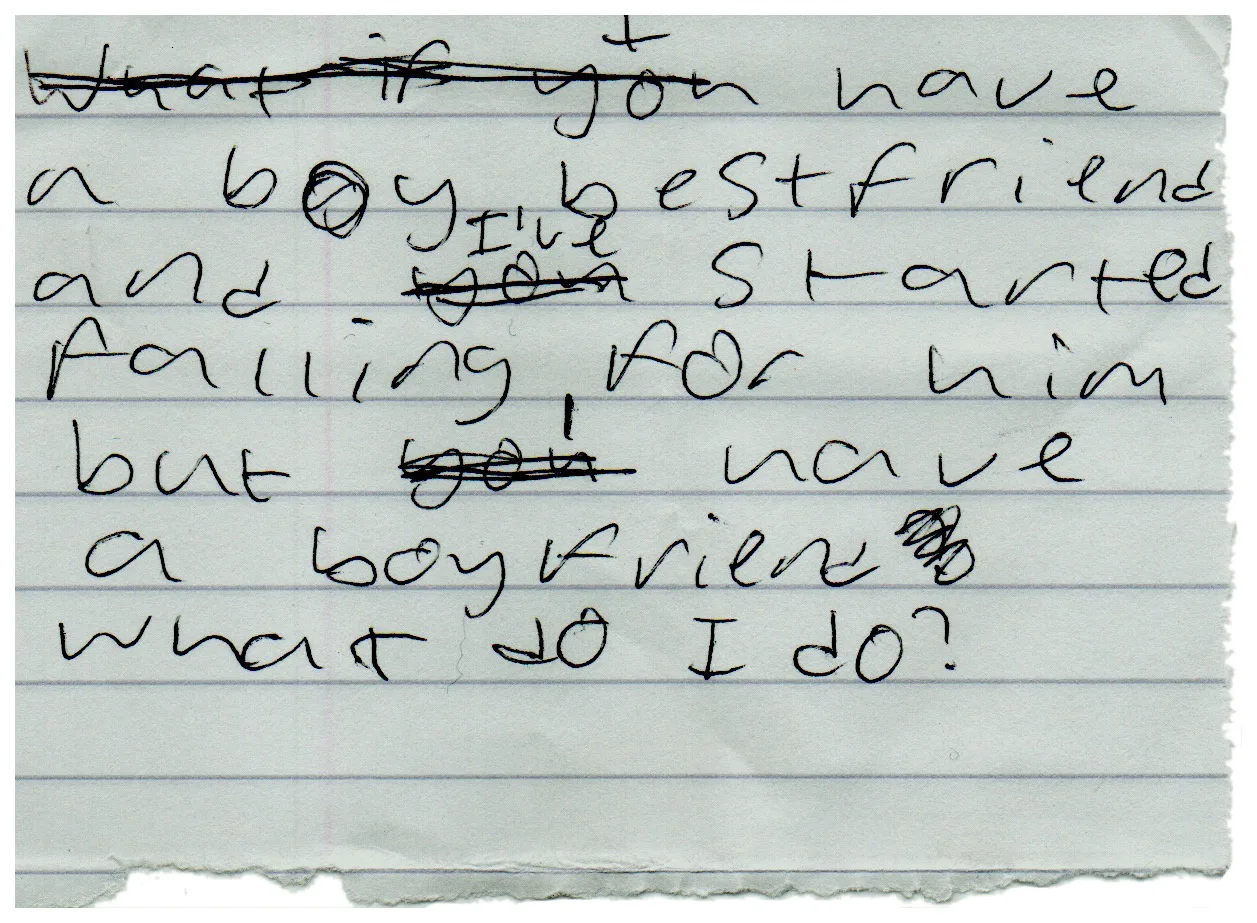 What if you I have
a boy bestfriend
and you I've started
falling for him
but you I have
a boyfriend
what do I do?